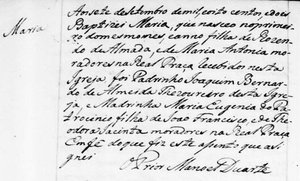 Maria
Aos sete de setembro de mil oito centos, e dois
Baptizei Maria, que nasceo no primei
ro do mesmo mes, e anno filha de Rozen
do de Almada, e de Maria Antonia mo
radores na Real Praça recebidos nesta
Igreja foi Padrinho Joaquim Bernar
do de Almeida Thezoureiro desta Igre
ja, e Madrinha Maria Eugenia do Pa
trocinio filha de Joao Francisco, e de The
odora Jacinta moradores na Real Praça
Em fé do que fiz este asento que as
signei
O Prior Manoel Duarte